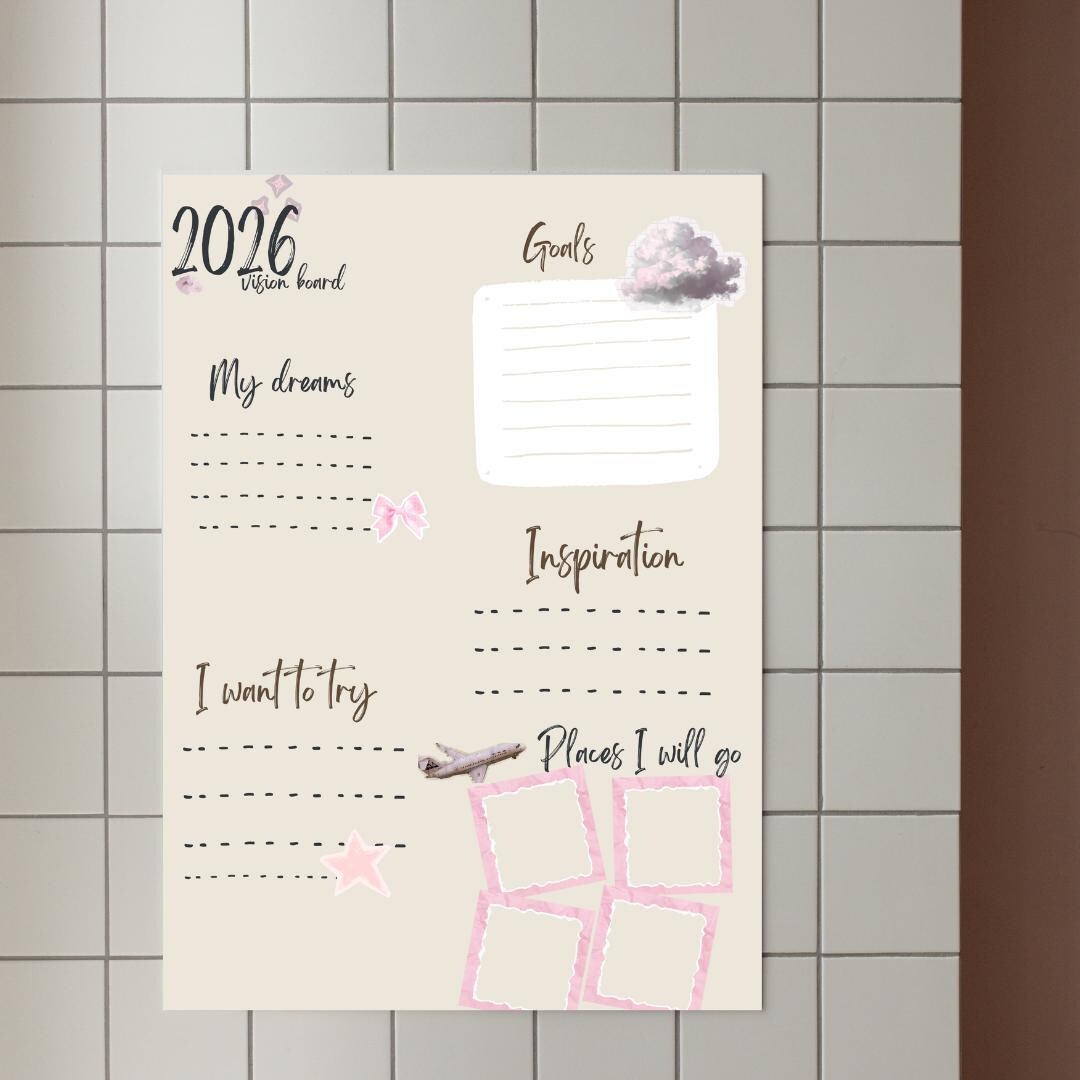 2026
vision board
My dreams
I want to try
Goals
Inspiration
Places I will go